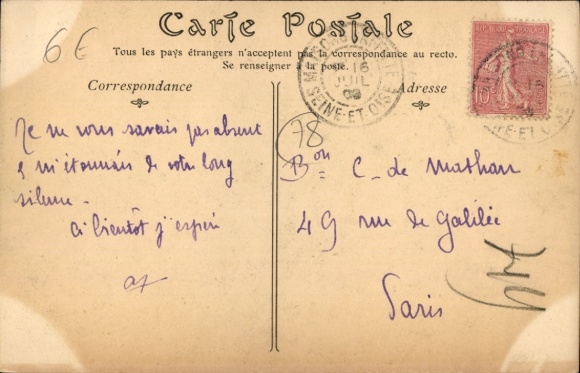 6€
Carte Postale
Tous les pays étrangers n'acceptent pas la correspondance au recto.
Se renseigner à la poste.
Correspondance
Adresse
16
JUIL
SEINE-ET-OISE
10
78
Je ne vous savais pas absent
& m'étonnais de votre long
silence -
à bientôt j'espère
Bon C. de Mathan
49 rue de Galilée
Paris